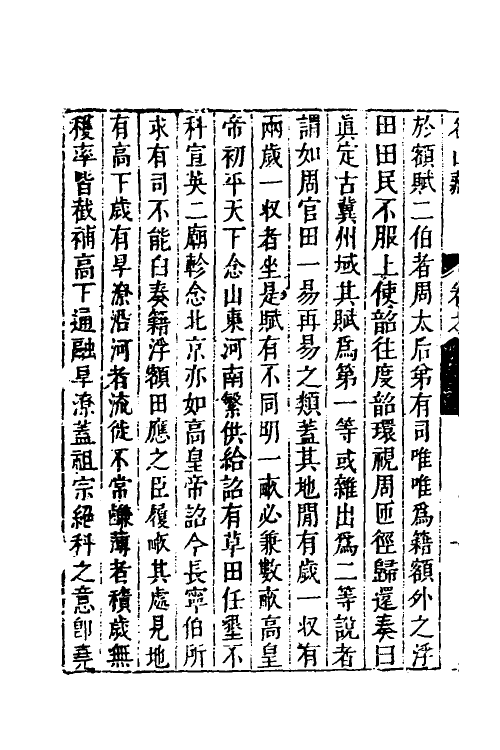 於額賦二伯者周太后弟有司唯唯爲籍額外之浮
田田民不服上使韶往度韶環視周匝徑歸還奏曰
眞定古冀州域其賦爲第一等或雜出爲二等說者
謂如周官田一易再易之類蓋其地閒有歲一収有
兩歲一収者坐是賦有不同明一畝必兼數畝高皇
帝初平天下念山東河南繁供給詔有草田任墾不
科宣英二廟軫念北京亦如高皇帝詔今長寧伯所
求有司不能臼奏籍浮額田應之臣履畝其處見地
有高下歲有旱潦沿河者流徙不常鹻薄者積歲無
穫率皆截補高下通融旱潦蓋祖宗絕科之意卽堯